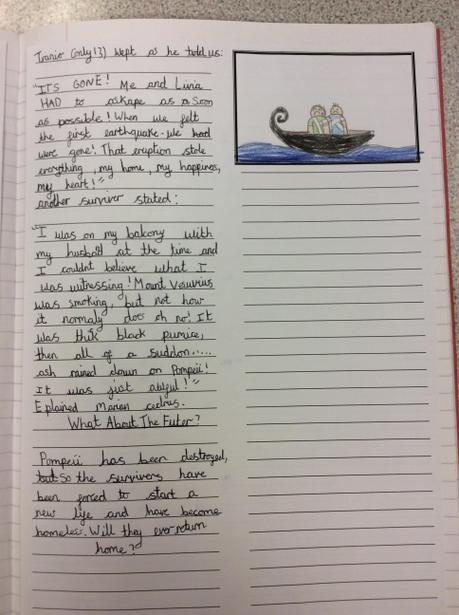 Tranio (only 13) wept as he told us:
"ITS GONE! Me and Livia
HAD to askape as a soon
as possible! When we felt
the first earthquake. We had
were gone! That eruption stole
everything, my home, my happiness,
my heart!"
another surviver stated:
"I was on my balcony with
my husband at the time and
I couldnt believe what I
was witnessing! Mount Vesuvius
was smoking, but not how
it normaly does oh no! It
was thik black pumice,
then all of a suddon.....
ash rained down on Pompeii!
It was just awful!"
Explained Marian
What About The Futer?
Pompeii has been destroyed,
So the survivers have
been forced to start a
new life and have become
homeless. Will they ever return
home?